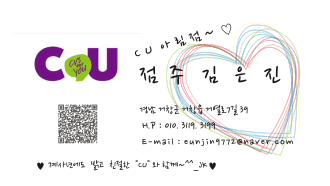 CU 아림점~♡
CU
CVS for YOU
점주 김은진
경남 거창군 거창읍 거열로7길 39
H.P : 010. 3119. 3199
E-mail : eunjin9772@naver.com
♥ 계사년에도 밝고 친절한 "CU"와 함께~^^_JK♥